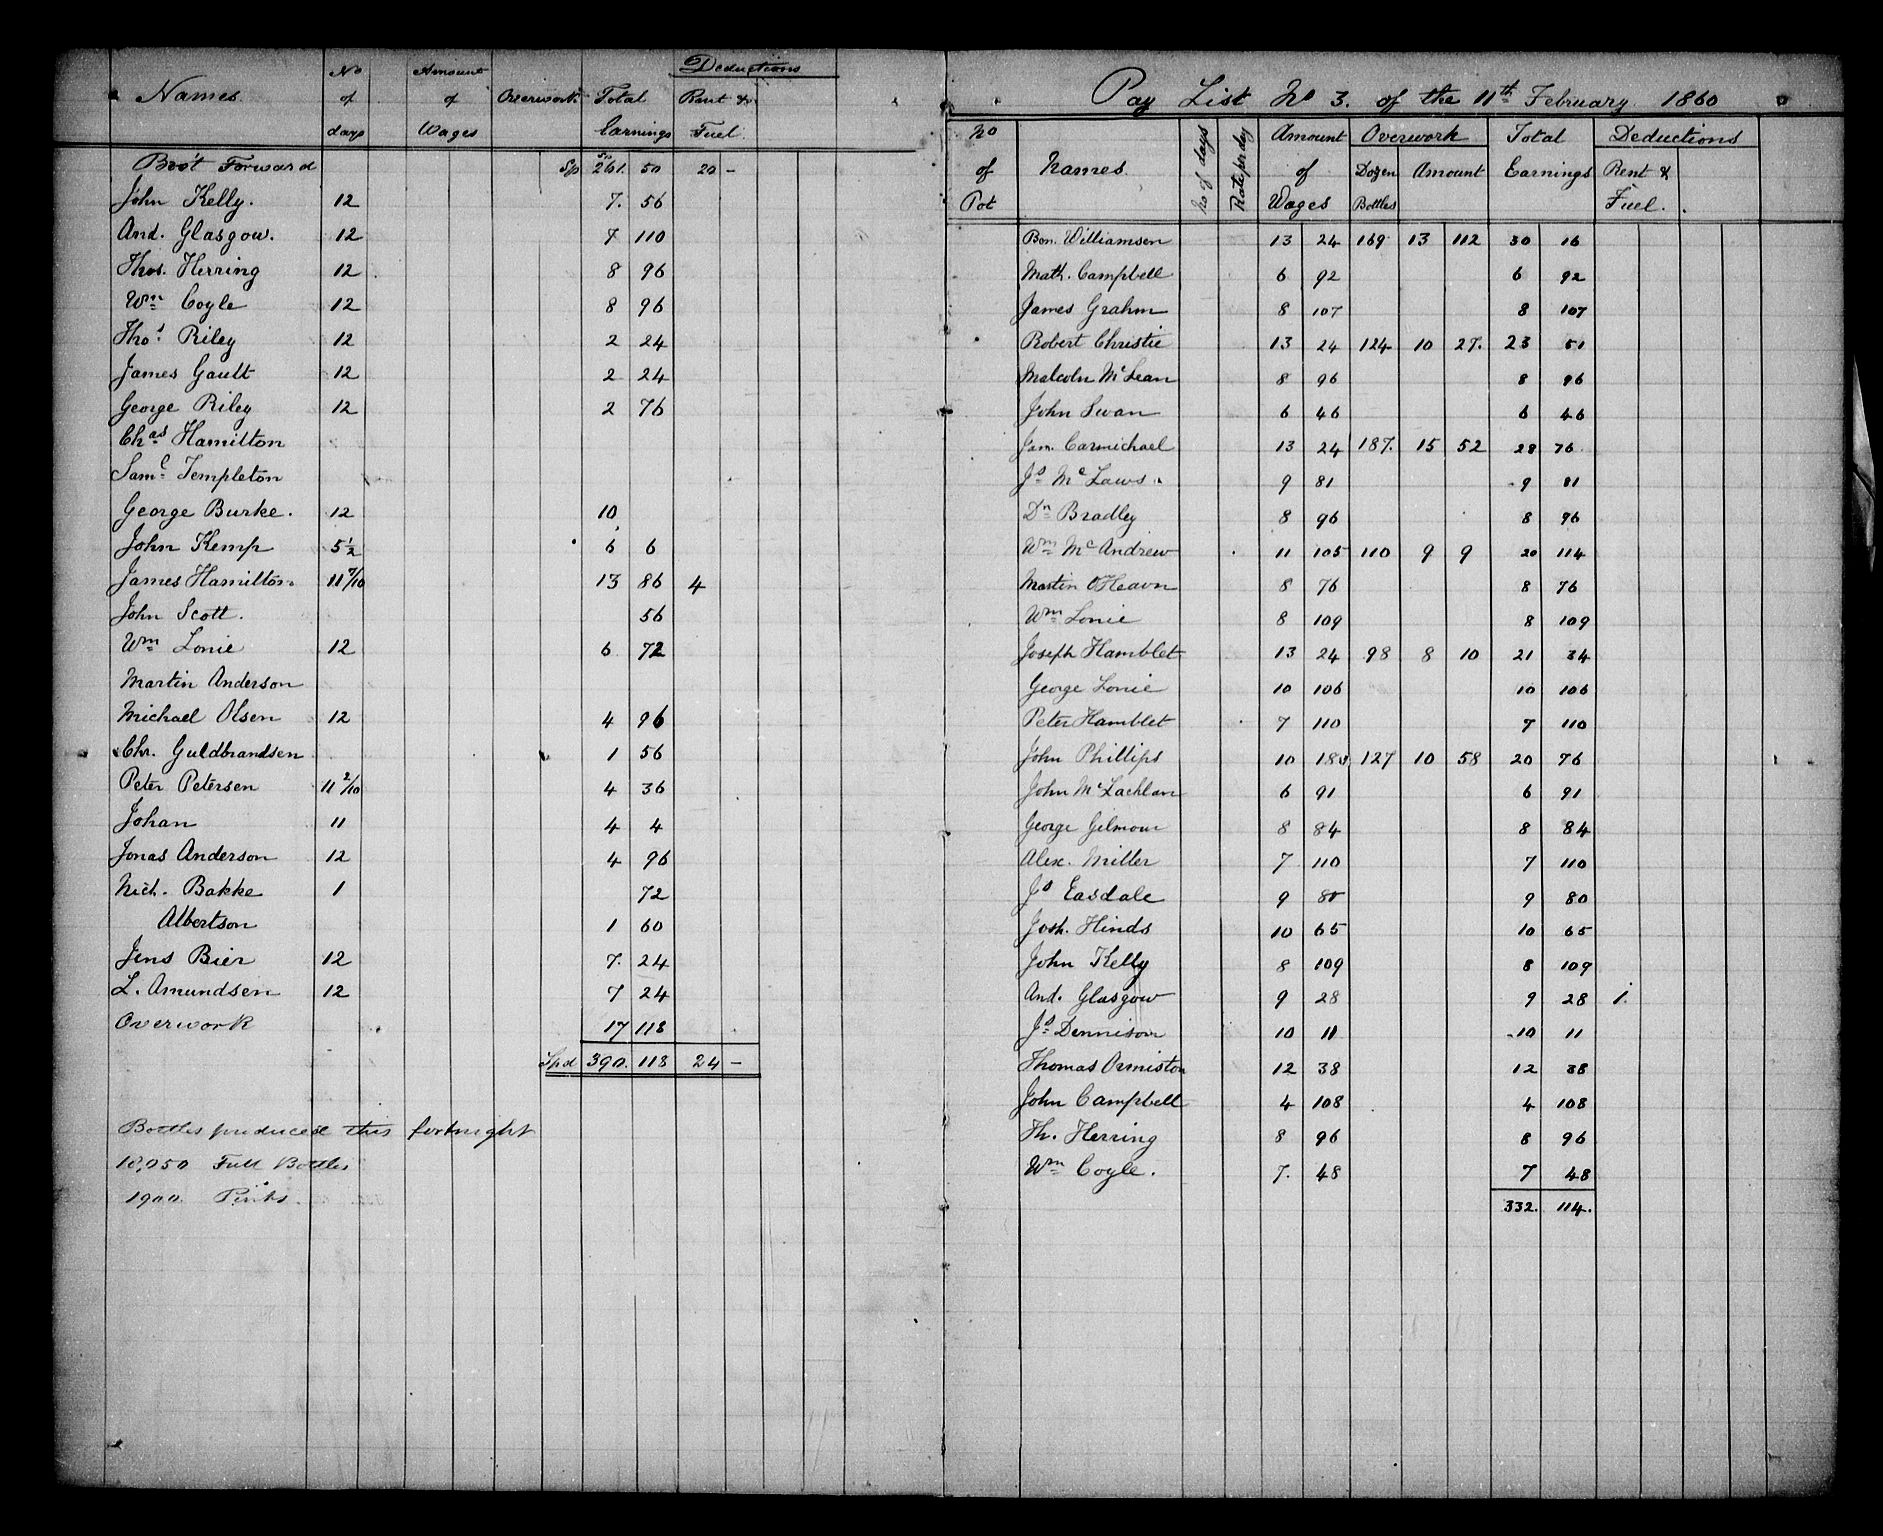 Names No of days Amount of Wages Overwork Total Earnings Deductions Rent & Fuel
Bro't Forward Sp 261. 50 20 -
John Kelly. 12 7. 56
And. Glasgow. 12 7 110
Thos. Herring 12 8 96
Wm Coyle 12 8 96
Thos. Riley 12 2 24
James Gault 12 2 24
George Riley 12 2 76
Chas Hamilton
Saml Templeton
George Burke. 12 10
John Kemp 5 1/2 6 6
James Hamilton. 11 7/10 13 86 4
John Scott. 56
Wm Lonie 12 6 72
Martin Anderson
Michael Olsen 12 4 96
Chr. Guldbrandsen 1 56
Peter Petersen 11 2/10 4 36
Johan 11 4 4
Jonas Anderson 12 4 96
Nich. Bakke 1 72
Albertson 1 60
Jens Bier 12 7. 24
L. Amundsen 12 7 24
Overwork 17 118
Spd 390. 118 24 -
Bottles produced this fortnight
18,050 Full Bottles
1900 Pints.
Pay List No 3. of the 11th February 1860
No of Pot Names. No of days Rate per day Amount of Wages Overwork Dozen Bottles Amount Total Earnings Deductions Rent & Fuel.
Ben. Williamsen 13 24 169 13 112 30 16
Math. Campbell 6 92 6 92
James Grahm 8 107 8 107
Robert Christie 13 24 124 10 27. 23 51
Malcoln McLean 8 96 8 96
John Swan 6 46 6 46
Jam. Carmichael 13 24 187. 15 52 28 76
Js McLaws 9 81 9 81
Dn Bradley 8 96 8 96
Wm McAndrew 11 105 110 9 9 20 114
Martin OHeavn 8 76 8 76
Wm Lonie 8 109 8 109
Joseph Hamblet 13 24 98 8 10 21 34
George Lonie 10 106 10 106
Peter Hamblet 7 110 7 110
John Phillips 10 127 10 58 20 76
John McLachlan 6 91 6 91
George Gilmour 8 84 8 84
Alex. Miller 7 110 7 110
Js Easdale 9 80 9 80
Josh. Hinds 10 65 10 65
John Kelly 8 109 8 109
And. Glasgow 9 28 9 28 1.
Js Dennison 10 11 10 11
Thomas Ormiston 12 38 12 38
John Campbell 4 108 4 108
Th. Herring 8 96 8 96
Wm Coyle. 7. 48 7 48
332. 114.